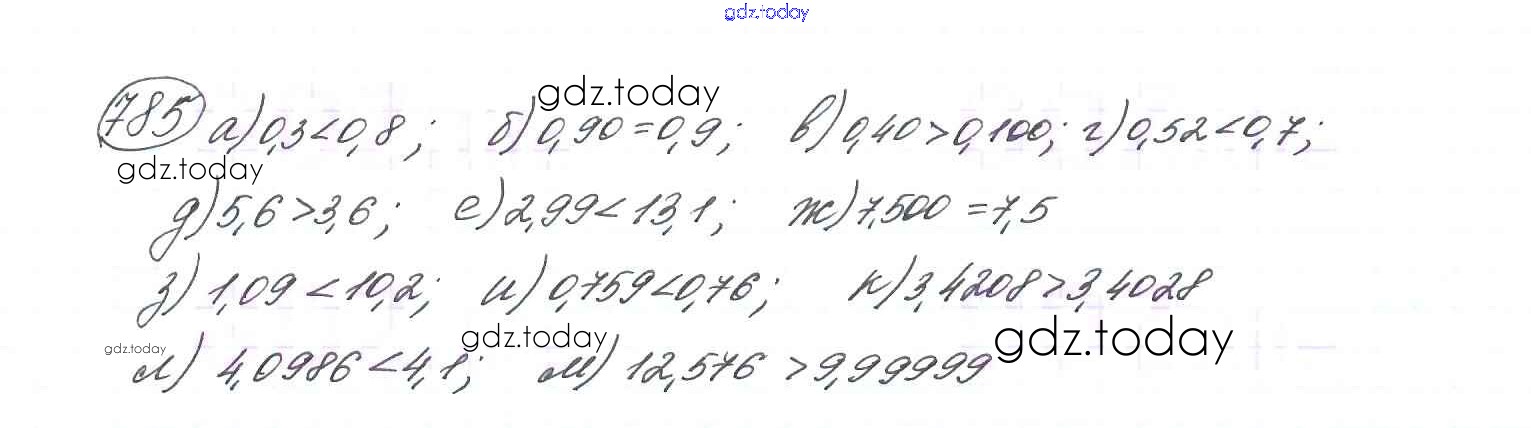 gdz.today
gdz.today
785 а) 0,3<0,8; б) 0,90=0,9; в) 0,40>0,100; г) 0,52<0,7;
gdz.today
д) 5,6>3,6; е) 2,99<13,1; ж) 7,500=7,5
з) 1,09<10,2; и) 0,759<0,76; к) 3,4208>3,4028
gdz.today gdz.today
gdz.today
л) 4,0986<4,1; м) 12,576>9,99999